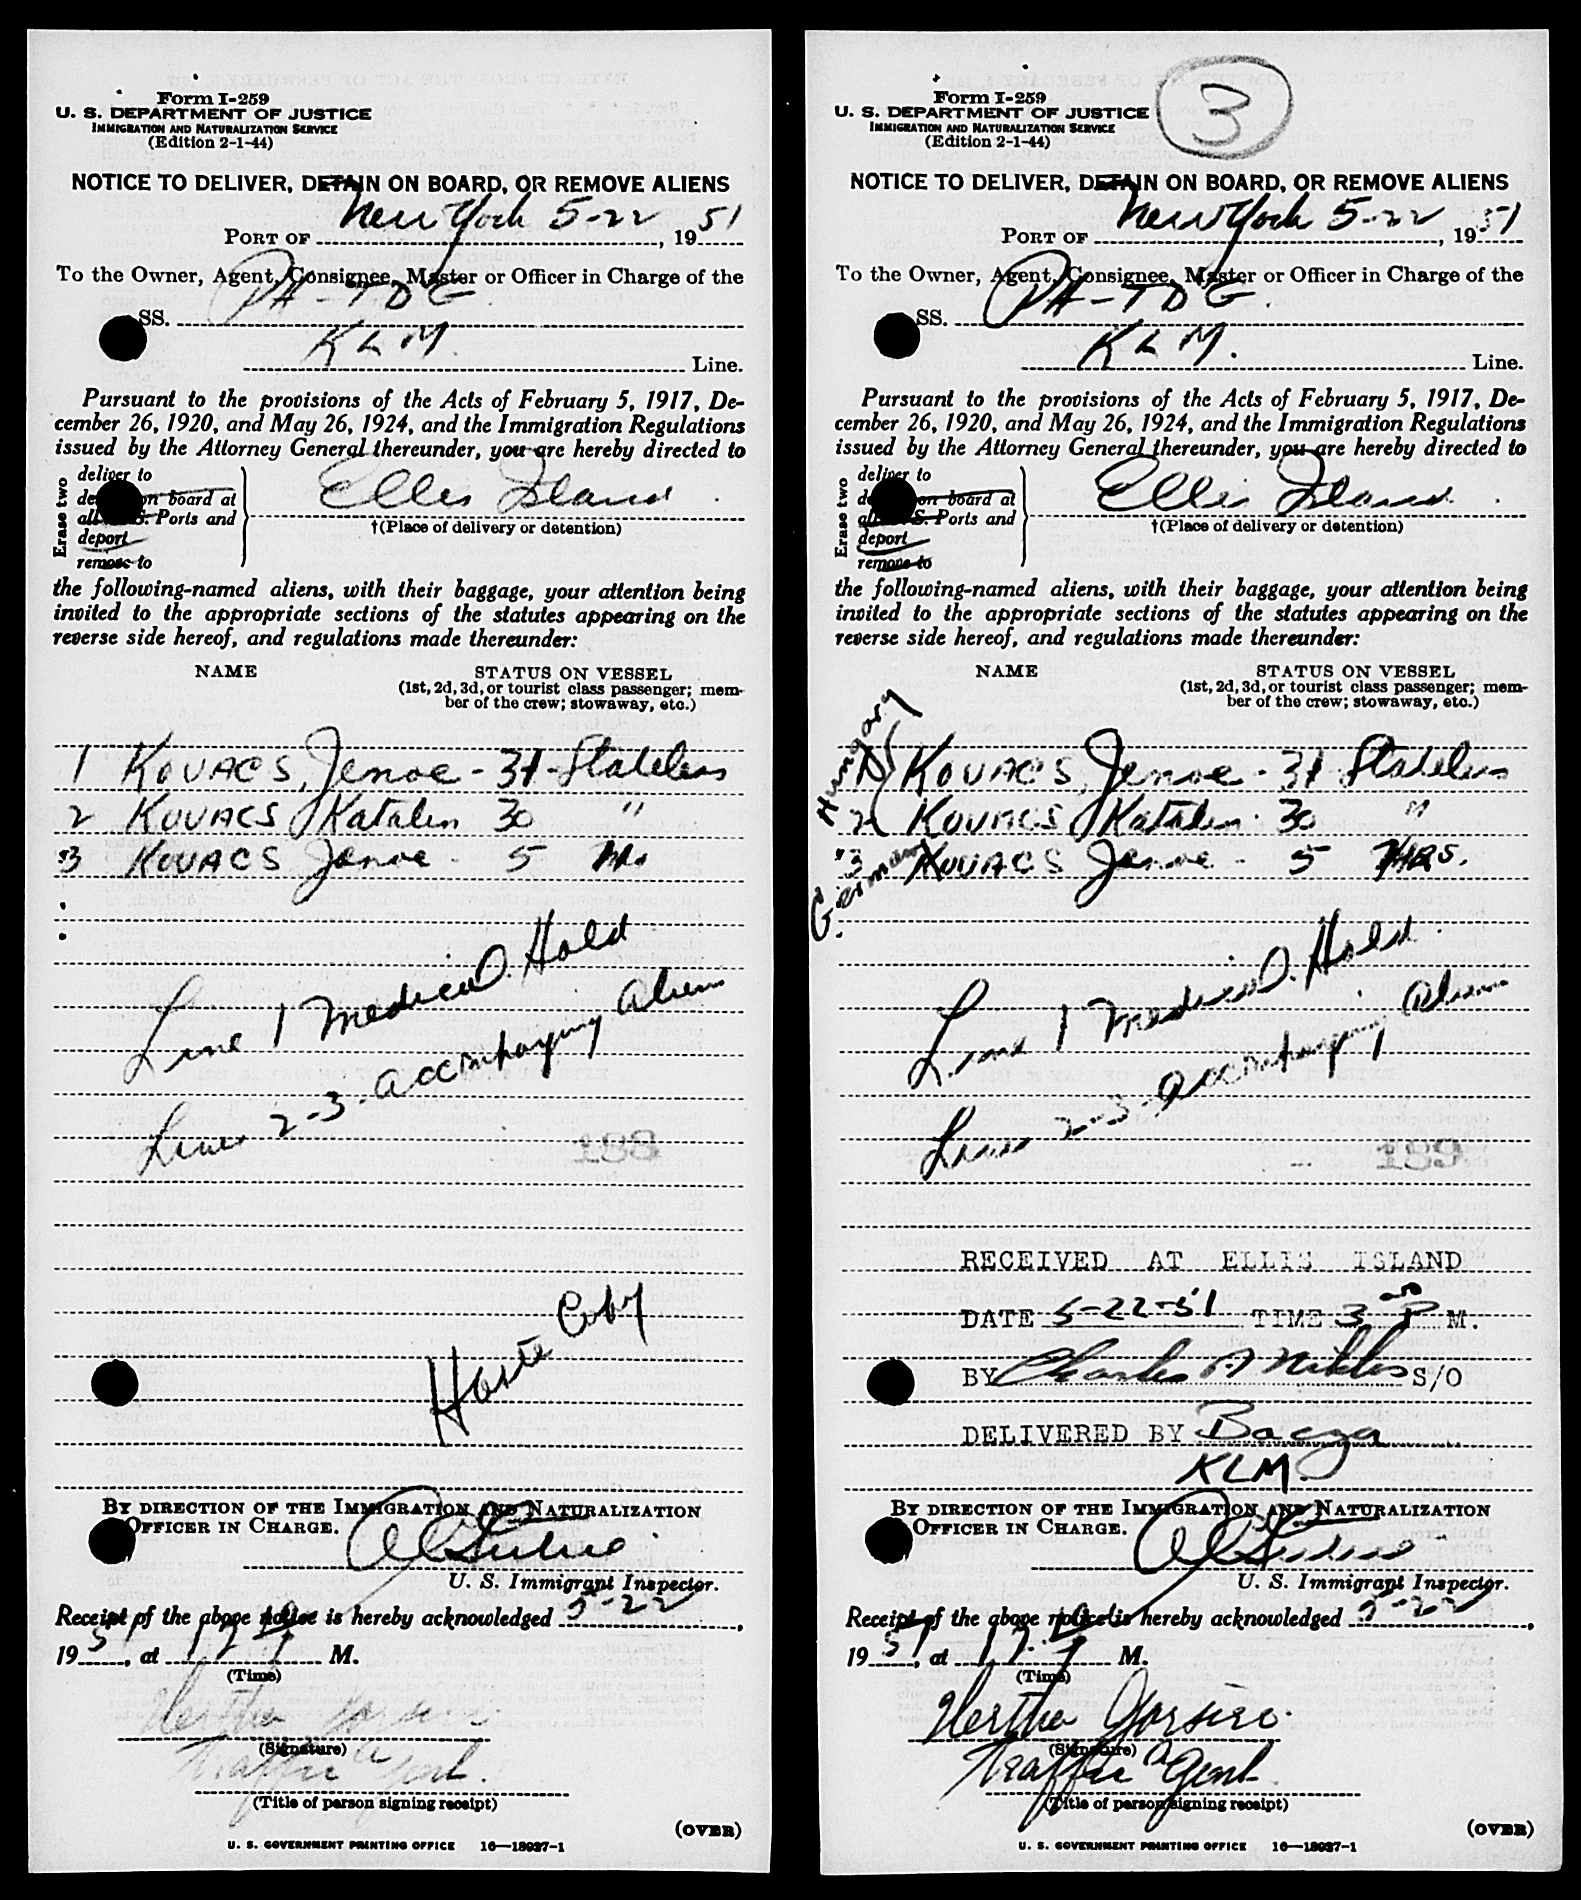 Form I-259
U. S. DEPARTMENT OF JUSTICE
IMMIGRATION AND NATURALIZATION SERVICE
(Edition 2-1-44)
NOTICE TO DELIVER, DETAIN ON BOARD, OR REMOVE ALIENS
PORT OF New York 5-22, 1951
To the Owner, Agent, Consignee, Master or Officer in Charge of the
SS. PH-TDG
KLM Line.
Pursuant to the provisions of the Acts of February 5, 1917, De-
cember 26, 1920, and May 26, 1924, and the Immigration Regulations
issued by the Attorney General thereunder, you are hereby directed to
Erase two
deliver to
on board at
all S. Ports and
deport
remove to
Ellis Island
†(Place of delivery or detention)
the following-named aliens, with their baggage, your attention being
invited to the appropriate sections of the statutes appearing on the
reverse side hereof, and regulations made thereunder:
NAME STATUS ON VESSEL
(1st, 2d, 3d, or tourist class passenger; mem-
ber of the crew; stowaway, etc.)
1 KOVACS, Jenoe - 31 - Stateless
2 KOVACS Katalin 30 "
3 KOVACS Jenoe - 5 Mos
Line 1 Medical Hold
Lines 2-3 - accompanying Alien
188
BY DIRECTION OF THE IMMIGRATION AND NATURALIZATION
OFFICER IN CHARGE.
U. S. Immigrant Inspector.
Receipt of the above notice is hereby acknowledged 5-22,
1951, at M.
(Time)
Hertha
(Signature)
Traffic Agent.
(Title of person signing receipt)
(OVER)
U. S. GOVERNMENT PRINTING OFFICE 16—18027-1
3
Form I-259
U. S. DEPARTMENT OF JUSTICE
IMMIGRATION AND NATURALIZATION SERVICE
(Edition 2-1-44)
NOTICE TO DELIVER, DETAIN ON BOARD, OR REMOVE ALIENS
PORT OF New York 5-22, 1951
To the Owner, Agent, Consignee, Master or Officer in Charge of the
SS. PH-TDG
KLM. Line.
Pursuant to the provisions of the Acts of February 5, 1917, De-
cember 26, 1920, and May 26, 1924, and the Immigration Regulations
issued by the Attorney General thereunder, you are hereby directed to
Erase two
deliver to
on board at
S. Ports and
deport
remove to
Ellis Island
†(Place of delivery or detention)
the following-named aliens, with their baggage, your attention being
invited to the appropriate sections of the statutes appearing on the
reverse side hereof, and regulations made thereunder:
NAME STATUS ON VESSEL
(1st, 2d, 3d, or tourist class passenger; mem-
ber of the crew; stowaway, etc.)
Hungary
1 KOVACS, Jenoe - 31 Stateless
2 KOVACS Katalin 30 "
3 KOVACS Jenoe - 5 MRS.
Germany
Line 1 Medical Hold
Lines 2-3 - accompanying Alien
189
RECEIVED AT ELLIS ISLAND
DATE 5-22-51 TIME 3 P M.
BY Charles A S/O
DELIVERED BY Bacza
KLM
BY DIRECTION OF THE IMMIGRATION AND NATURALIZATION
OFFICER IN CHARGE.
U. S. Immigrant Inspector.
Receipt of the above notice is hereby acknowledged 5-22,
1951, at M.
(Time)
Hertha
(Signature)
Traffic Agent
(Title of person signing receipt)
(OVER)
U. S. GOVERNMENT PRINTING OFFICE 16—18027-1